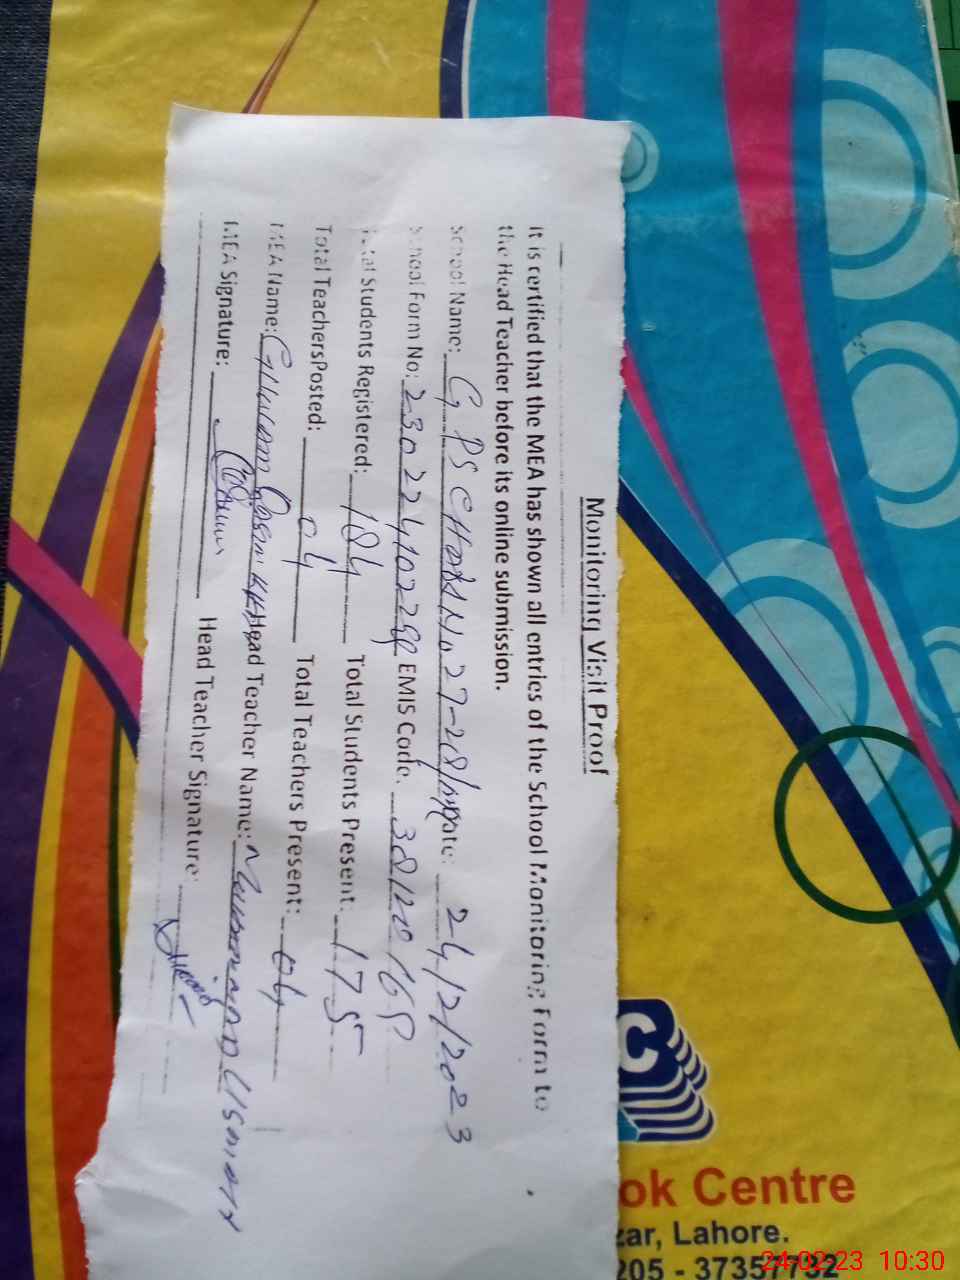 Monitoring Visit Proof
It is certified that the MEA has shown all entries of the School Monitoring Form to
the Head Teacher before its online submission.
School Name: GPS CHAK No 27-28/ Date: 24/2/2023
School Form No: 23022410228 EMIS Code: 
Total Students Registered: 184 Total Students Present: 175
Total Teachers Posted: 04 Total Teachers Present: 04
MEA Name: Head Teacher Name: Muhammad Usman
MEA Signature: Head Teacher Signature:
C
ok Centre
zar, Lahore.
205 - 37357732
24-02-23 10:30